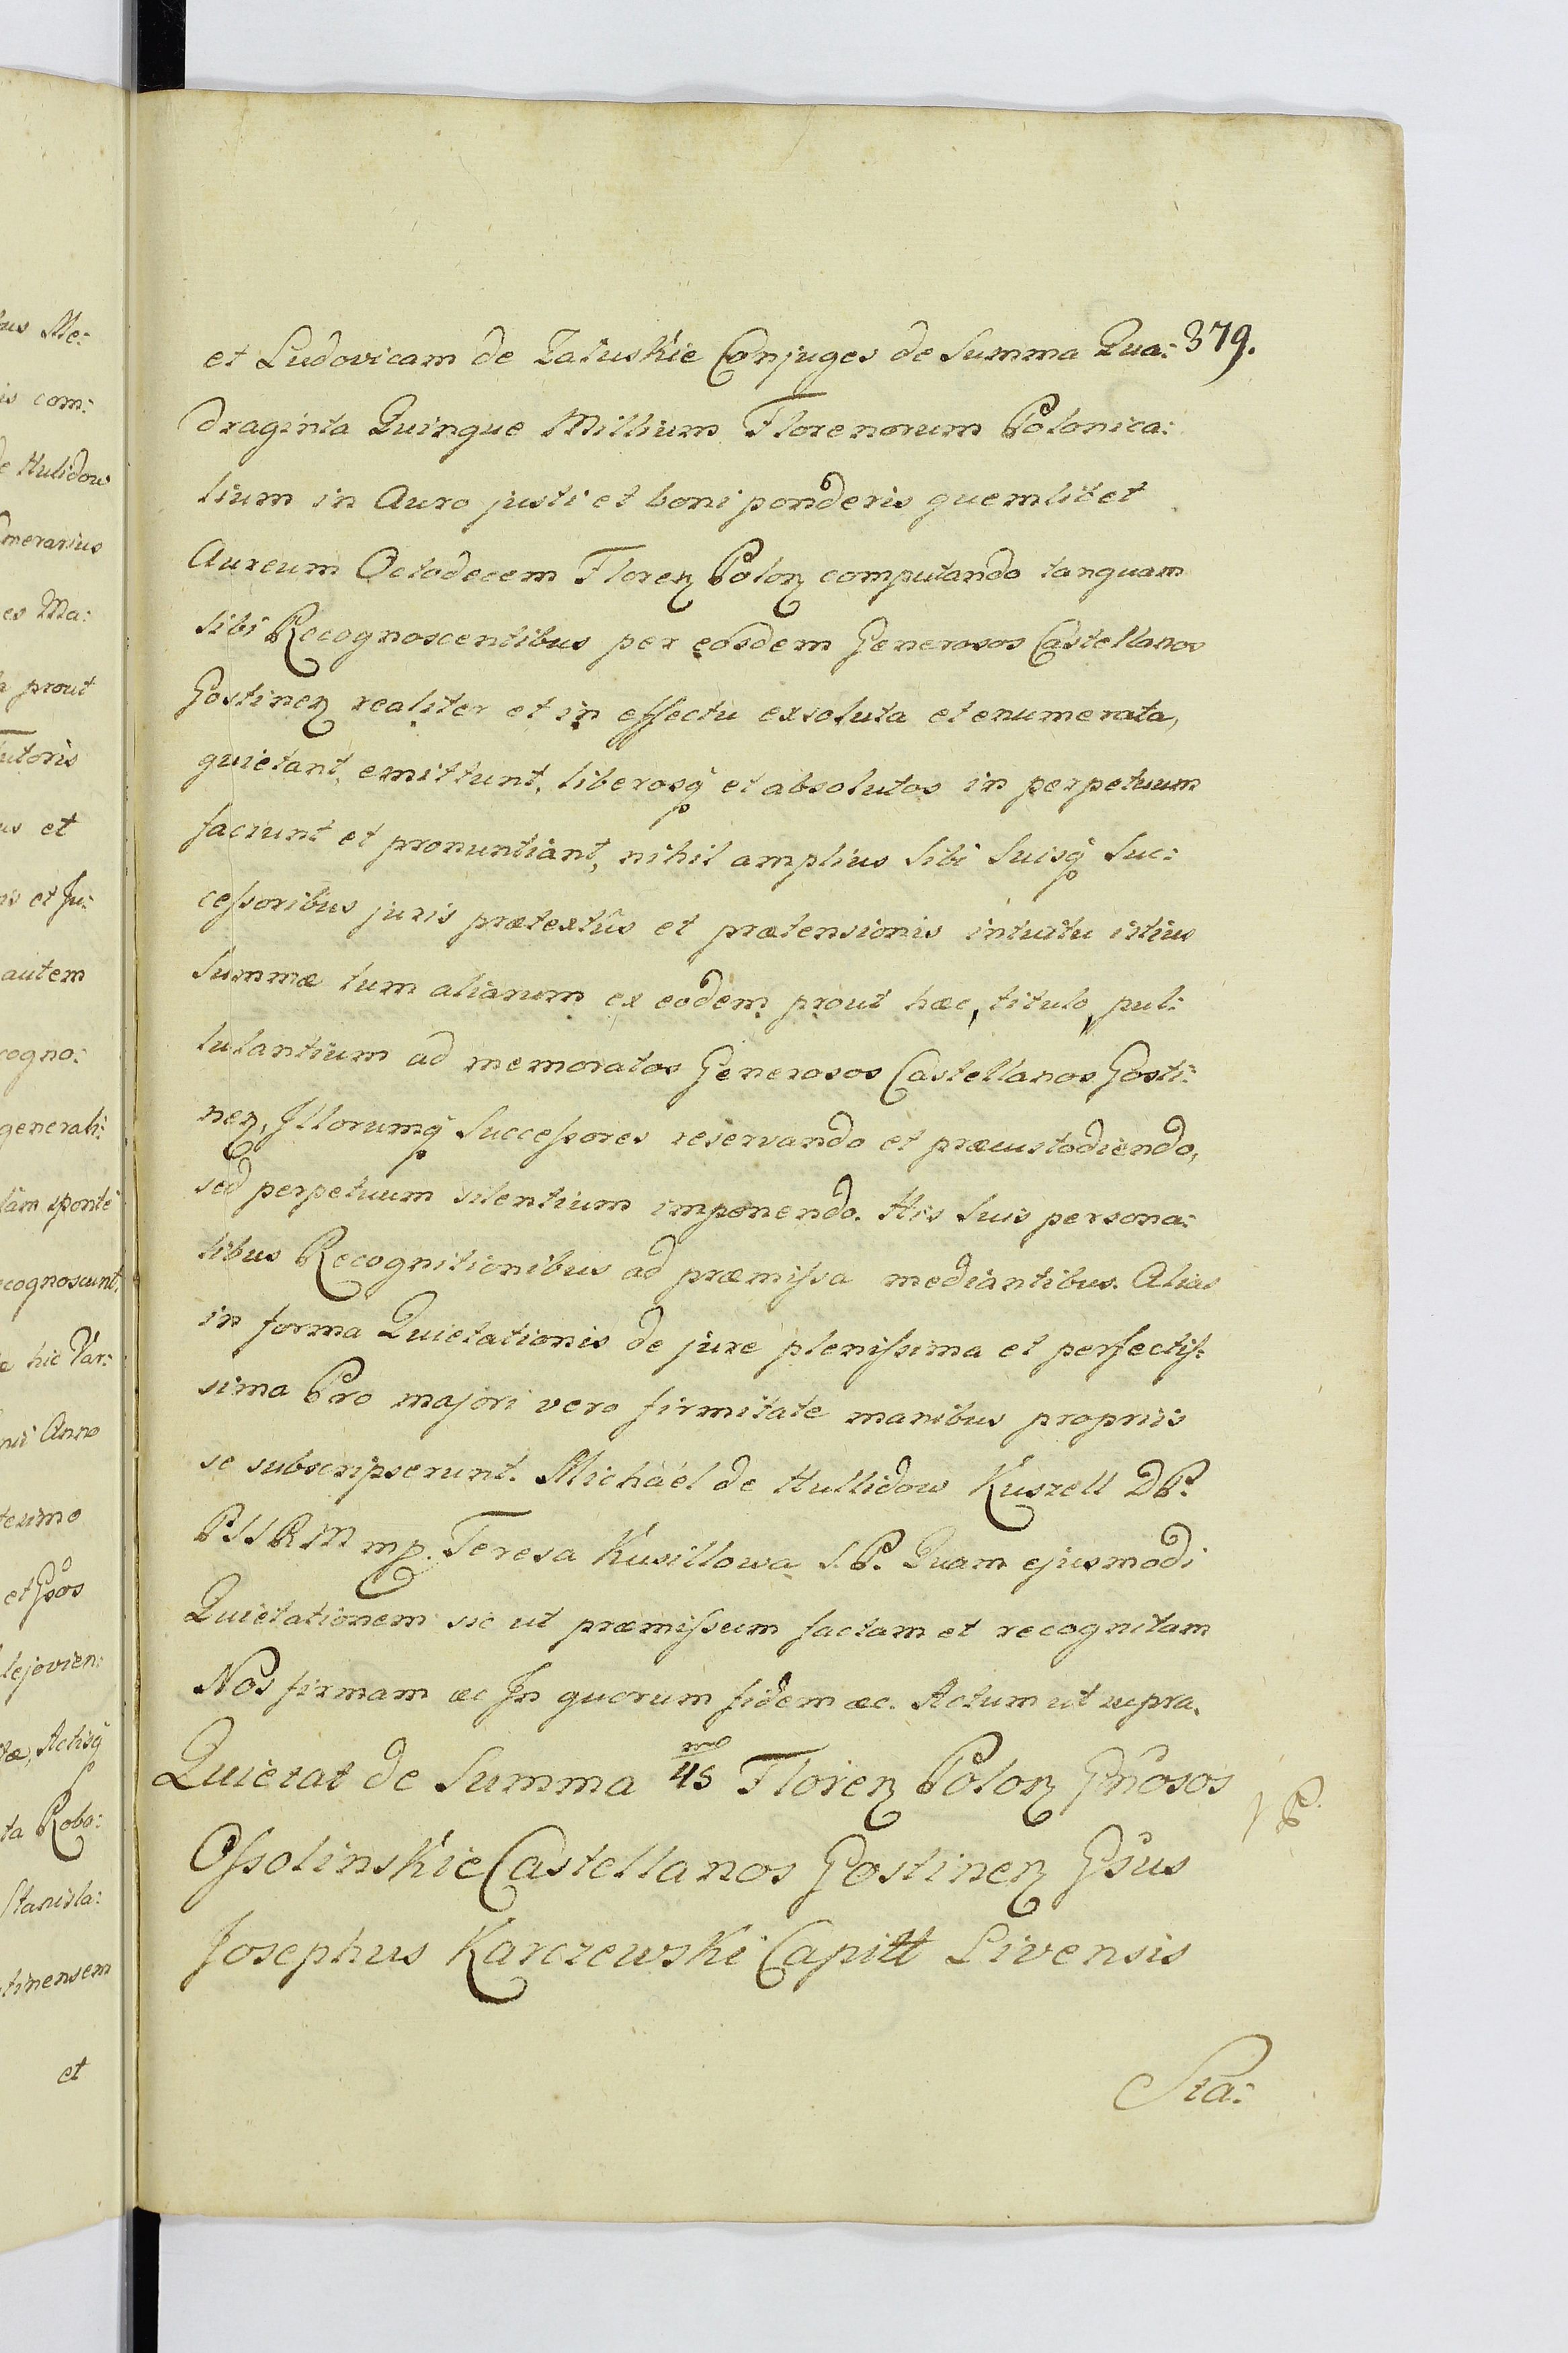 379.
et Ludovicam de Załuskie Conjuges de Summa Qua:
draginta Quinque Millium Florenorum Polonica:
lium in Auro justi et boni ponderis quemlibet
Aureum Octodecem Floren Polon computando tanquam
sibi Recognoscentibus per eosdem Generosos Castellanos
Gostinen realiter et in effectu exsoluta et enumerata,
quietant, emittunt, liberosq et absolutos in perpetuum
faciunt et pronuntiant, nihil amplius Sibi Suisq Suc:
cessoribus juris prætextûs et prætensionis intuitu istius
Summæ tum aliarum ex eodem prout hæc, titulo, pul:
lulantium ad memoratos Generosos Castellanos Gosti:
nen, Illorumq Successores reservando et præcustodiendo,
sed perpetuum silentium imponendo. His Suis persona:
libus Recognitionibus ad præmissa mediantibus. Alias
in forma Quietationis de jure plenissima et perfectis:
sima Pro majori vero firmitate manibus propriis
se subscripserunt. Michaél de Hullidow Kuszell DP.
PSSRM mp. Teresa Kusillowa S.P. Quam ejusmodi
Quietationem sic ut præmissum factam et recognitam
Nos firmam æc In quorum fidem æc. Actum ut supra.
Quietat de Summa 45 Floren Polon Gñosos
Ossolinskie Castellanos Gostinen Gsus
Josephus Karczewski Capitt Livensis
Sta:
bus Me:
is com:
de Hulidow
merarius
es Ma:
a prout
Tutoris
us et
is et Ju:
autem
cogno:
generali:
lâm sponte
cognoscunt,
e hic Var:
ni Anno
tesimo
et Gsos
lejovien:
tæ, Actisq
ta Robo:
Stanisla:
tinensem
et